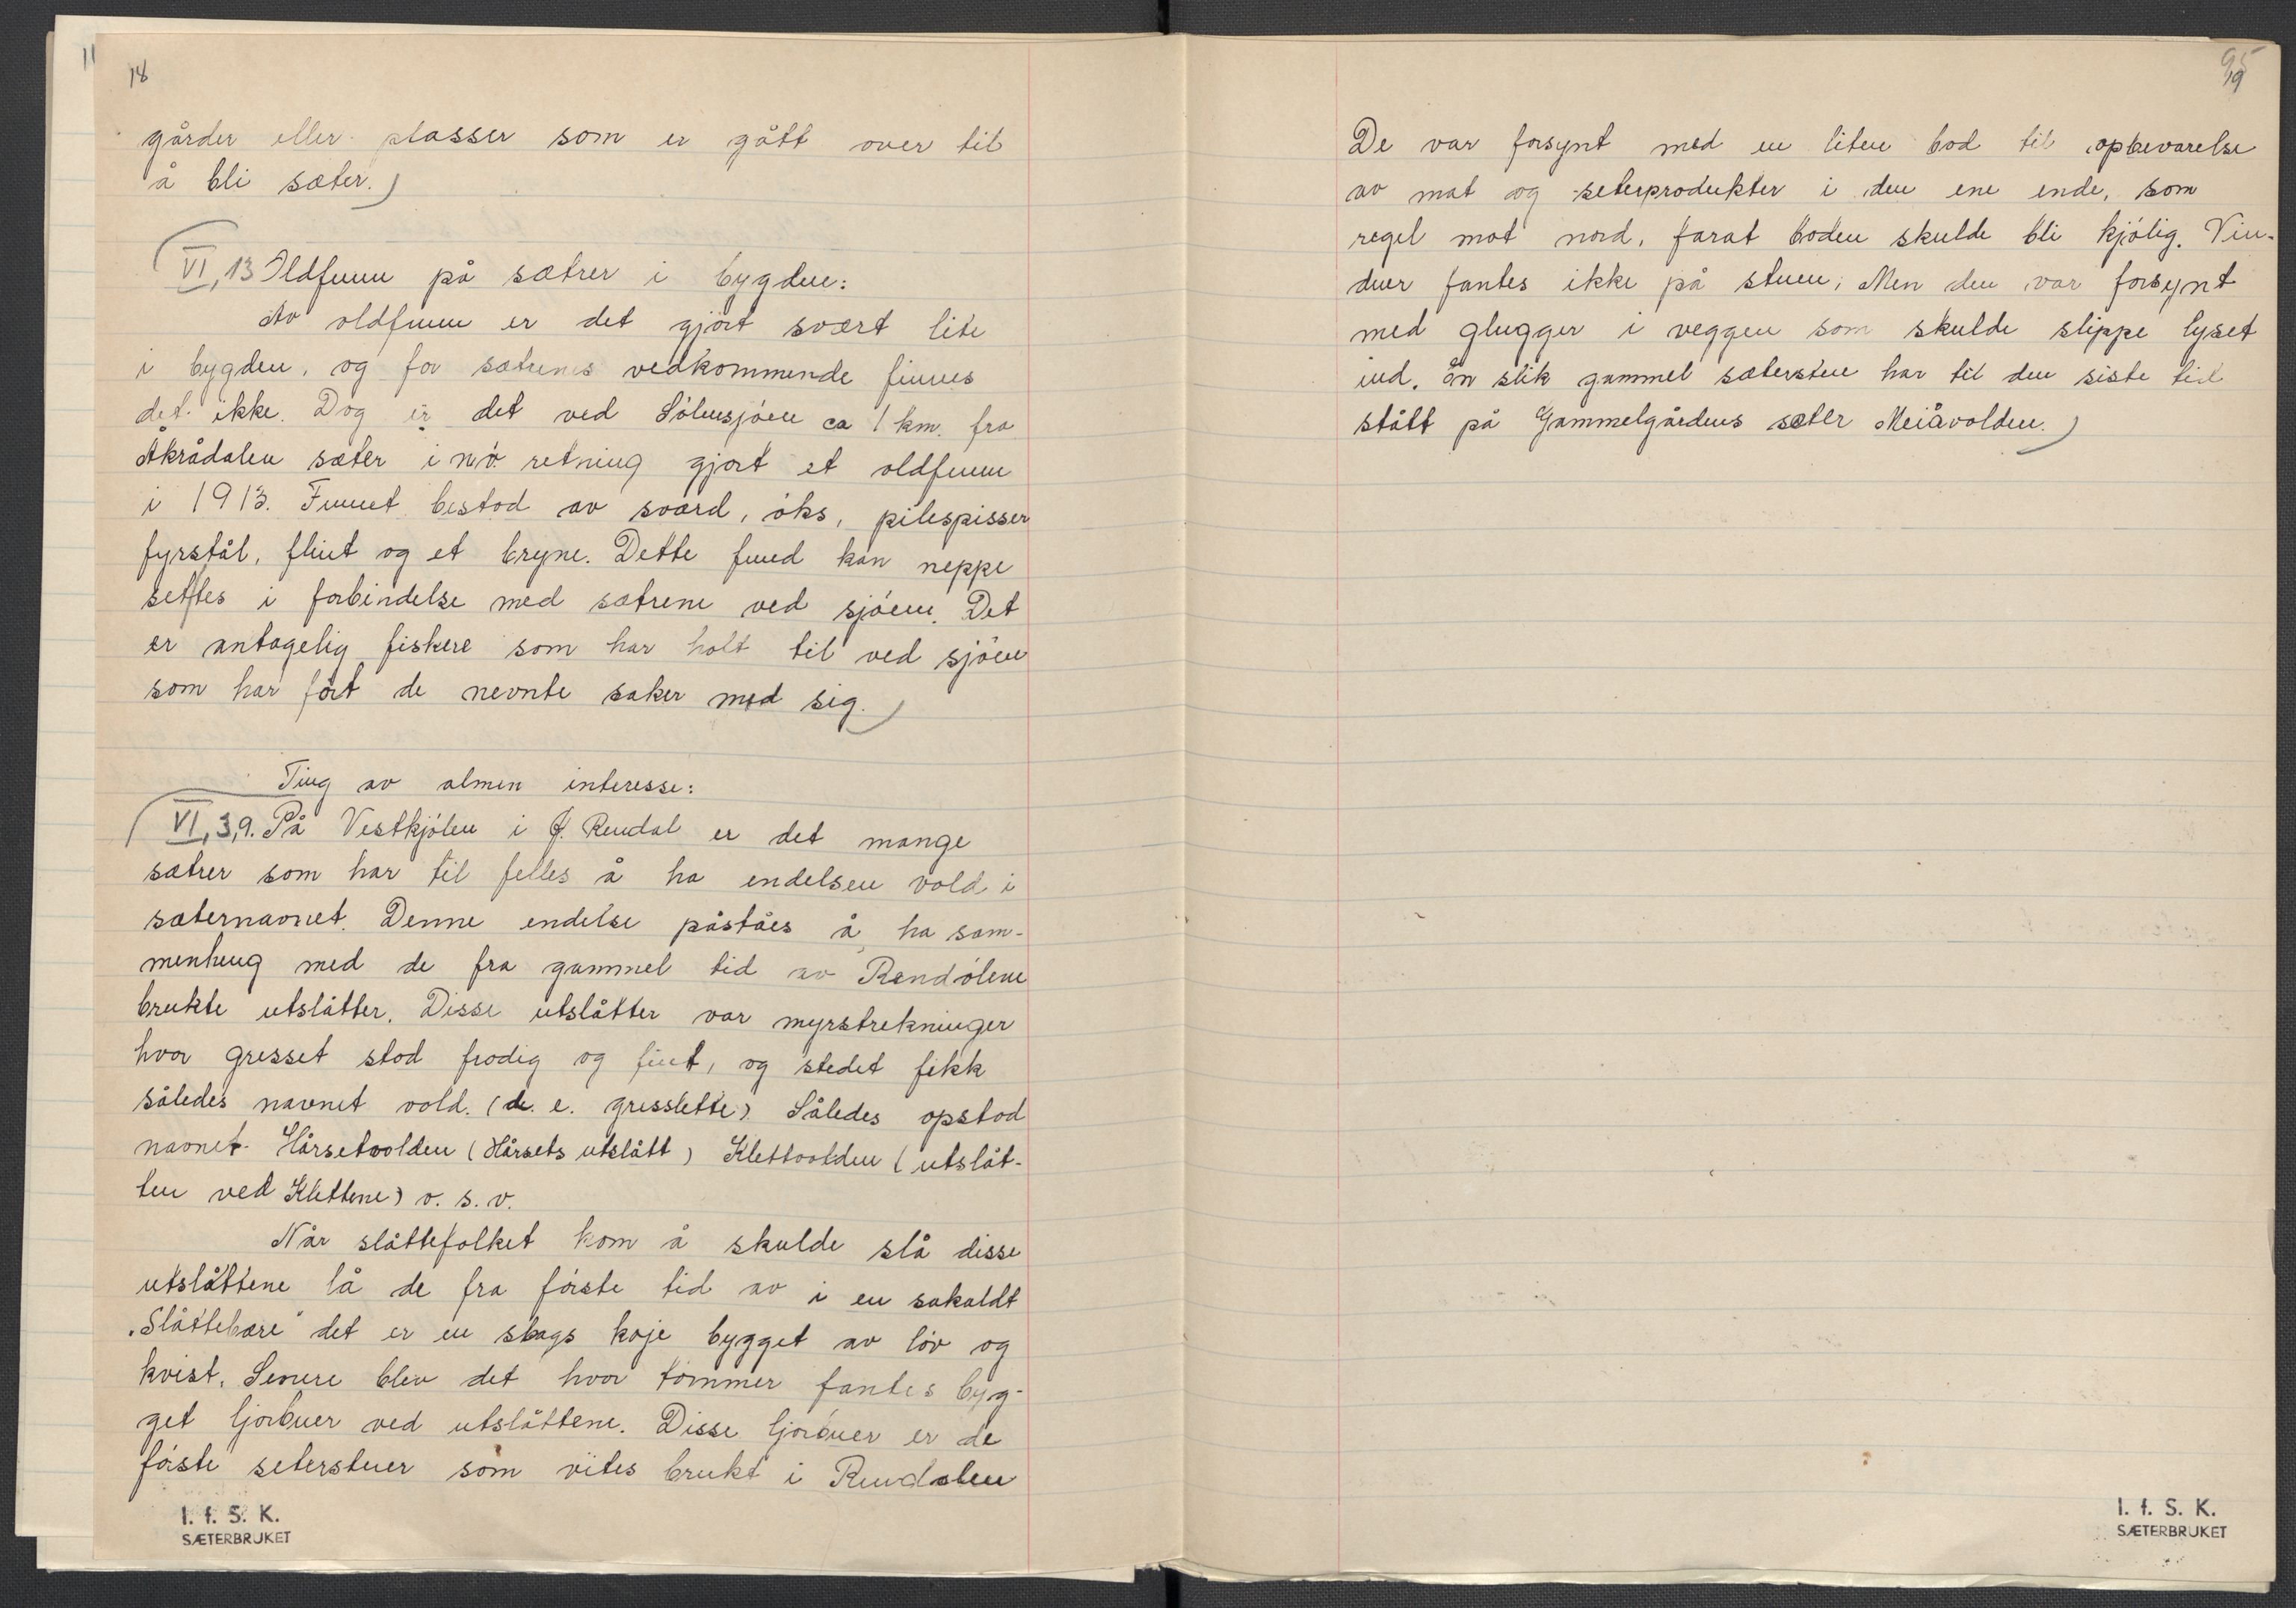 18
gårder eller plasser som er gått over til
å bli sæter.)
VI, 13 Oldfunn på sætrer i bygden:
Av oldfunn er det gjort svært lite
i bygden, og for sætrenes vedkommende finnes
det ikke. Dog er det ved Sölensjöen ca 1 km. fra
Åkrådalen sæter i nö. retning gjort et oldfunn
i 1913. Funnet bestod av sværd, öks, pilespisser
fyrstål, flint og et bryne. Dette fund kan neppe
settes i forbindelse med sætrene ved sjöen. Det
er antagelig fiskere som har holt til ved sjöen
som har fört de nevnte saker med sig.)
Ting av almen interesse:
(VI, 3,9. På Vestkjölen i Y. Rendal er det mange
sætrer som har til felles å ha endelsen vold i
sæternavnet. Denne endelse påståes å ha sam-
menheng med de fra gammel tid av Rendölene
brukte utslåtter. Disse utslåtter var myrstrekninger
hvor gresset stod frodig og fint, og stedet fikk
således navnet vold. (d. e. gresslette) Således opstod
navnet Hårsetvolden (Hårsets utslått) Klettvolden (utslåt-
ten ved Klettene) o. s. v.
Når slåttefolket kom å skulde slå disse
utslåttene lå de fra förste tid av i en såkaldt
"Slåttebære" det er en slags koje bygget av löv og
kvist. Senere blev det hvor tömmer fantes byg-
get ljorbuer ved utslåttene. Disse ljorbuer er de
förste seterstuer som vites brukt i Rendalen
I. f. S. K.
SÆTERBRUKET
95
19
De var forsynt med en liten bod til opbevarelse
av mat og seterprodukter i den ene ende, som
regel mot nord, forat boden skulde bli kjölig. Vin-
duer fantes ikke på stuen, Men den var forsynt
med glugger i veggen som skulde slippe lyset
ind. En slik gammel sæterstue har til den siste tid
stått på Gammelgårdens sæter Meiåvolden.)
I. f. S. K.
SÆTERBRUKET